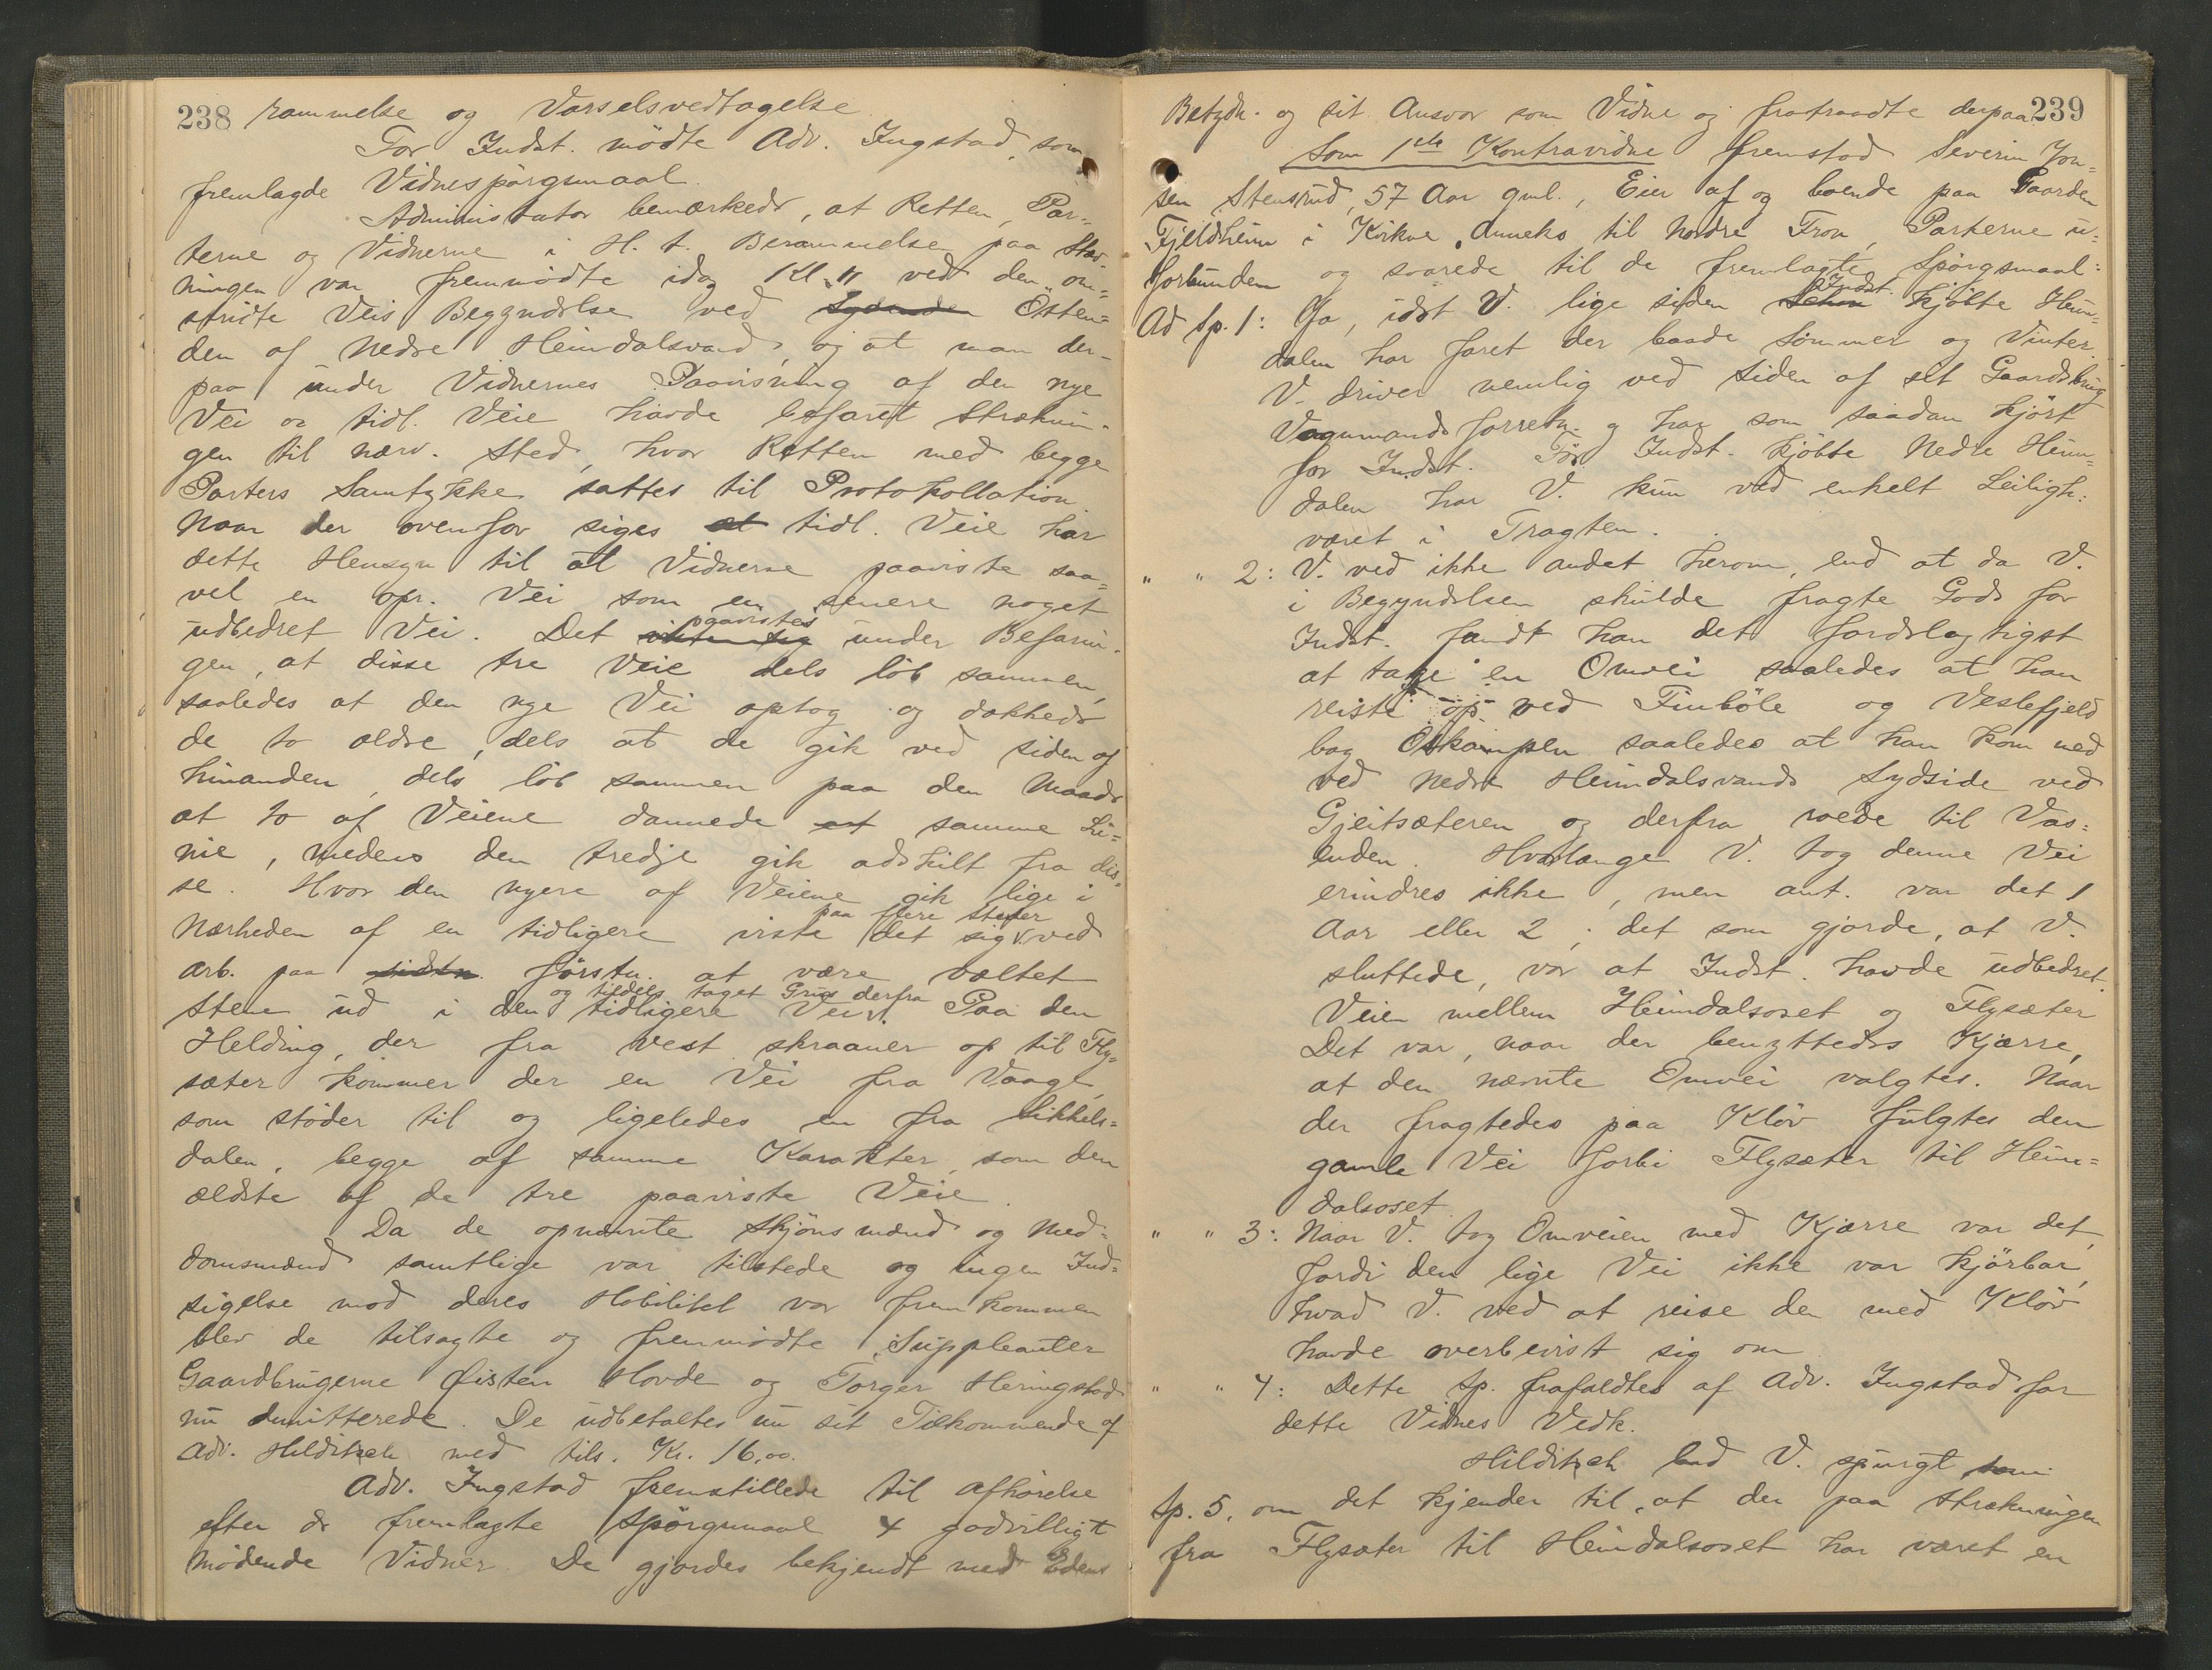 238 rammelse og Varselsvedtagelse
For Indst. mödte Adv. Ingstad, som
fremlagde Vidnespörgsmaal.
Administrator bemærkede, at Retten, Par-
terne og Vidnerne i H. t. Berammelse paa Stæv-
ningen var fremmödte idag Kl. 11 ved den om-
stridte Veis Begyndelse ved Sydenden Östen-
den af Nedre Heimdalsvand, og at man der-
paa under Vidnernes Paavisning af den nye
Vei og tidl. Veie havde befaret Stræknin-
gen til nærv. Sted, hvor Retten med begge
Parters Samtykke sattes til Protokollation
Naar der ovenfor siges at tidl. Veie har
dette Hensyn til at Vidnerne paaviste saa-
vel en opr. Vei som en senere noget
paavistes
udbedret Vei. Det viste sig under Befarin-
gen, at disse tre Veie dels löb sammen,
saaledes at den nye Vei optog og dækkede
de to ældre, dels at de gik ved siden af
hinanden, dels löb sammen paa den Maade
at to af Veiene dannede et samme Li-
nie, medens den tredje gik adskilt fra dis-
se. Hvor den nyere af Veiene gik lige i
paa flere Steder
Nærheden af en tidligere viste det sig v. ved
Arb. paa sidstn. förstn. at være væltet
og tildels taget Grus derfra
Sten ud i den tidligere Vei. Paa den
Helding, der fra Vest skraaner op til Fly-
sæter kommer der en Vei fra Vaage,
som stöder til og ligeledes en fra Sikkels-
dalen, begge af samme Karakter, som den
ældste af de tre paaviste Veie.
Da de opnævnte Skjönsmænd og Med-
domsmænd samtlige var tilstede og ingen Ind-
sigelse mod deres Habilitet var fremkommen
blev de tilsagte og fremmödte Suppleanter
Gaardbrugerne Øisten Hovde og Torger Heringstad
nu dimitterede. De udbetaltes nu sit Tilkommende af
Adv. Hilditsch med tils. Kr. 16,00.
Adv. Ingstad fremstillede til Afhörelse
efter de fremlagte Spörgsmaal 4 godvilligt
mödende Vidner. De gjordes bekjendt med Edens
Betydn. og sit Ansvar som Vidne og fratraadte derpaa. 239
Som 1ste Kontravidne fremstod Severin Jon-
sen Stensrud, 57 Aar gml., Eier af og boende paa Gaarden
Fjeldheim i Kvikne Anneks til Nordre Fron, Parterne u-
forbunden og svarede til de fremlagte Spörgsmaal:
Indst.
Ad Sp. 1: Ja, idet V. lige siden kjöbte Heim-
dalen har faret der baade Sommer og Vinter.
V. driver nemlig ved Siden af sit Gaardsbrug
Vognmandsforretn. og har som saadan kjört
for Indst. Før Indst. kjöbte Nedre Heim-
dalen har V. kun ved enkelt Leiligh.
været i Tragten.
" " 2: V. ved ikke andet herom, end at da V.
i Begyndelsen skulde fragte Gods for
Indst. fandt han det fordelagtigst
at tage en Omvei saaledes at han
reiste op ved Finböle og Veslefjeld
bag Oskampen saaledes at han kom ned
ved Nedre Heimdalsvands Sydside ved
Gjeitsæteren og derfra roede til Vas-
enden. Hvorlænge V. tog denne Vei
erindres ikke, men ant. var det 1
Aar eller 2; det som gjorde, at V.
sluttede, var at Indst. havde udbedret
Veien mellem Heimdalsoset og Flysæter
Det var, naar der benyttedes Kjærre,
at den nævnte Omvei valgtes. Naar
der fragtedes paa Klöv fulgtes den
gamle Vei forbi Flysæter til Heim-
dalsoset.
" " 3: Naar V. tog Omveien med Kjærre var det,
fordi den lige Vei ikke var kjörbar,
hvad V. ved at reise den med Klöv
havde overbevist sig om
" " 4: Dette Sp. frafaldtes af Adv. Ingstad for
dette Vidnes Vedk.
Hilditsch lod V. spurgt som
Sp. 5. om det kjender til, at der paa Strækningen
fra Flysæter til Heimdalsoset har været en